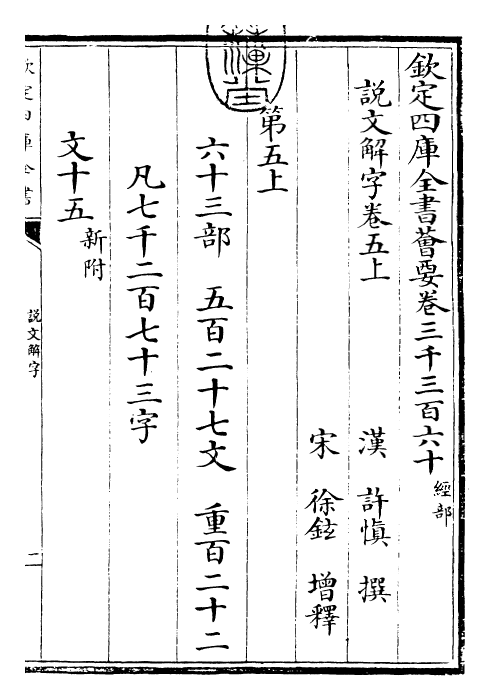 欽定四庫全書薈要卷三千三百六十 經部
說文解字卷五上
漢 許慎 撰
宋 徐鉉 增釋
第五上
六十三部 五百二十七文 重百二十二
凡七千二百七十三字
文十五 新附
欽定四庫全書
說文解字